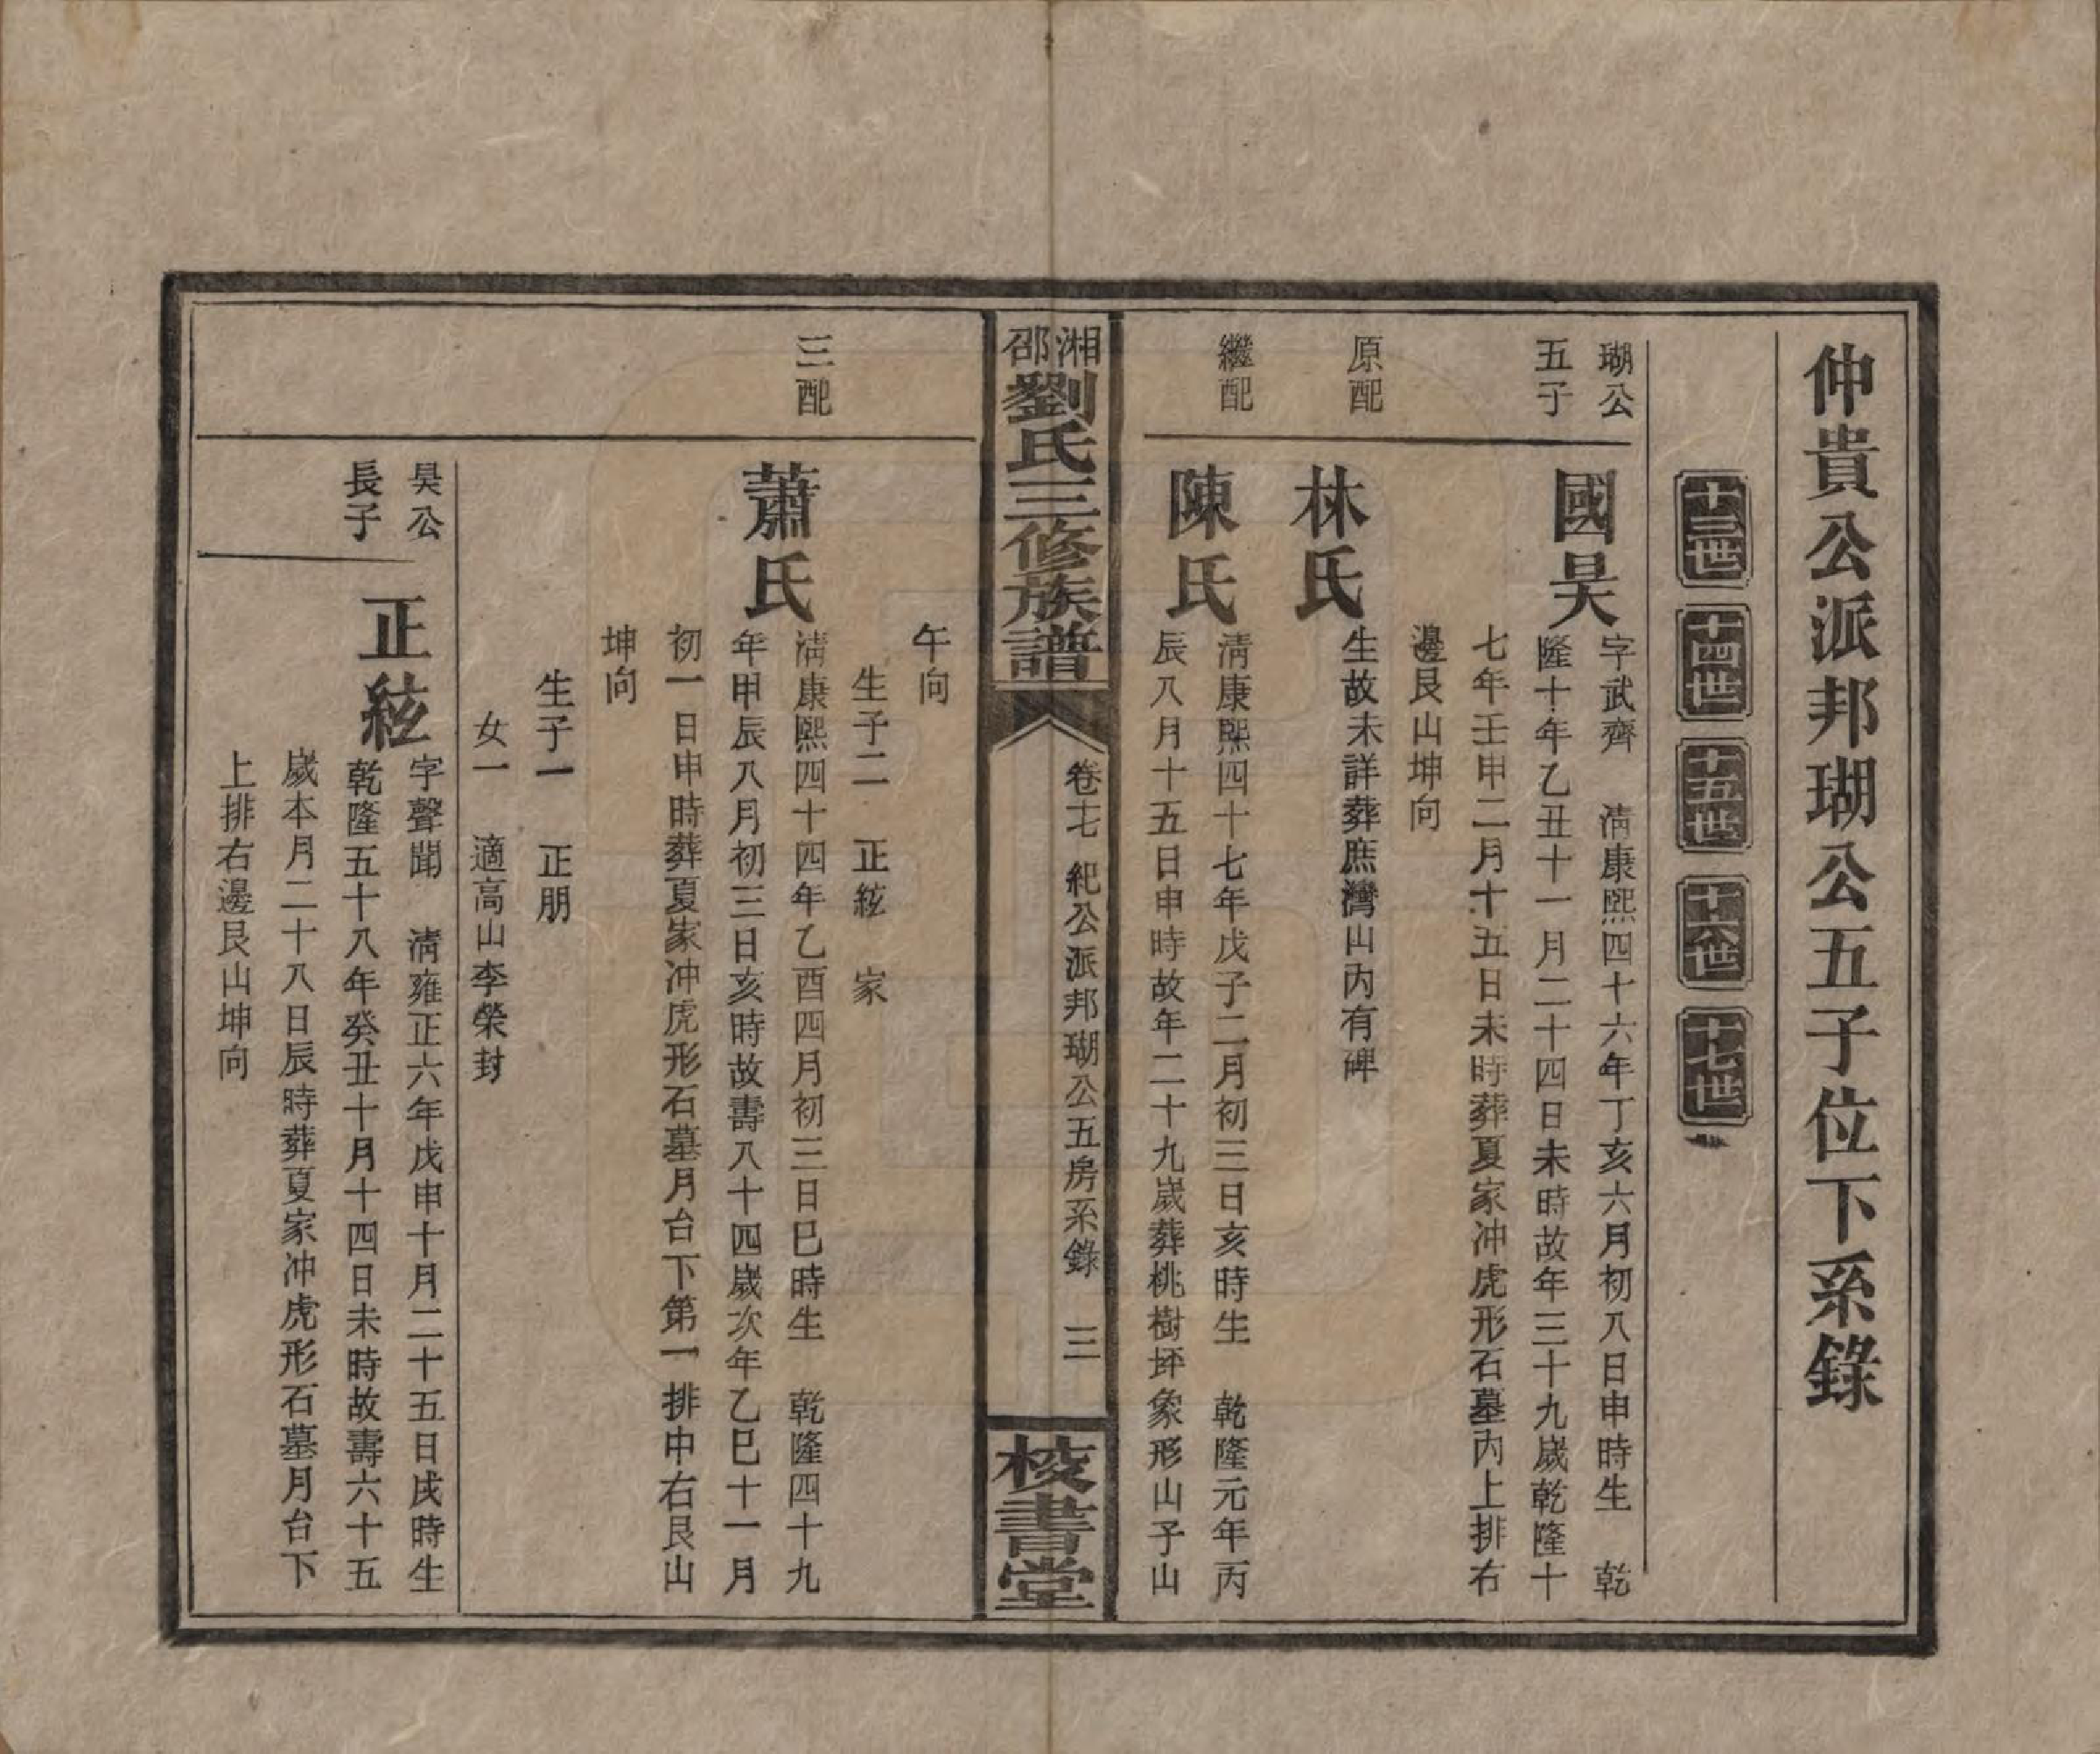 仲貴公派邦瑚公五子位下系錄
十三世 十四世 十五世 十六世 十七世
瑚公
五子
國昊
字武齊 清康熙四十六年丁亥六月初八日申時生 乾
隆十年乙丑十一月二十四日未時故年三十九歲乾隆十
七年壬申二月十五日未時葬夏家冲虎形石墓內上排右
邊艮山坤向
原配
林氏
生故未詳葬庶灣山內有碑
繼配
陳氏
清康熙四十七年戊子二月初三日亥時生 乾隆元年丙
辰八月十五日申時故年二十九歲葬桃樹坪象形山子山
湘邵劉氏三修族譜
卷十七 紀公派邦瑚公五房系錄 三
校書堂
午向
生子二 正絃 家
三配
蕭氏
清康熙四十四年乙酉四月初三日巳時生 乾隆四十九
年甲辰八月初三日亥時故壽八十四歲次年乙巳十一月
初一日申時葬夏家冲虎形石墓月台下第一排中右艮山
坤向
生子一 正朋
女一 適高山李榮封
昊公
長子
正絃
字聲聞 清雍正六年戊申十月二十五日戌時生
乾隆五十八年癸丑十月十四日未時故壽六十五
歲本月二十八日辰時葬夏家冲虎形石墓月台下
上排右邊艮山坤向